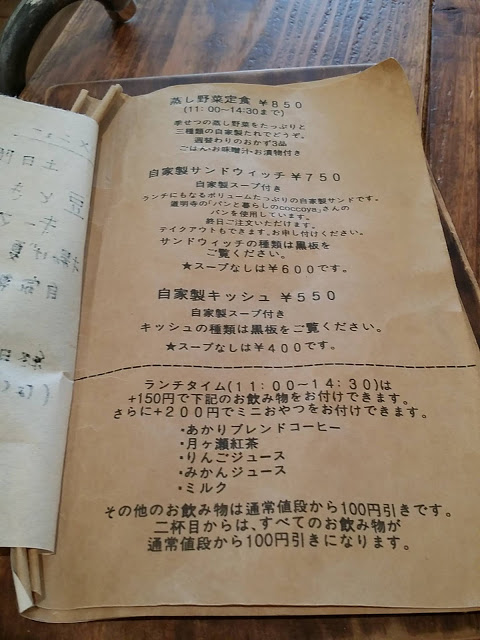 蒸し野菜定食 ¥850
(11:00〜14:30まで)
季せつの蒸し野菜をたっぷりと
三種類の自家製たれでどうぞ。
週替わりのおかず3品
ごはん・お味噌汁・お漬物付き
自家製サンドウィッチ ¥750
自家製スープ付き
ランチにもなるボリュームたっぷりの自家製サンドです。
道明寺の「パンと暮らしのcoccoya」さんの
パンを使用しています。
終日ご注文いただけます。
テイクアウトもできます。お申し付けください。
サンドウィッチの種類は黒板を
ご覧ください。
★スープなしは¥600です。
自家製キッシュ ¥550
自家製スープ付き
キッシュの種類は黒板をご覧ください。
★スープなしは¥400です。
ランチタイム(11:00〜14:30)は
+150円で下記のお飲み物をお付けできます。
さらに+200円でミニおやつをお付けできます。
・あかりブレンドコーヒー
・月ヶ瀬紅茶
・りんごジュース
・みかんジュース
・ミルク
その他のお飲み物は通常値段から100円引きです。
二杯目からは、すべてのお飲み物が
通常値段から100円引きになります。